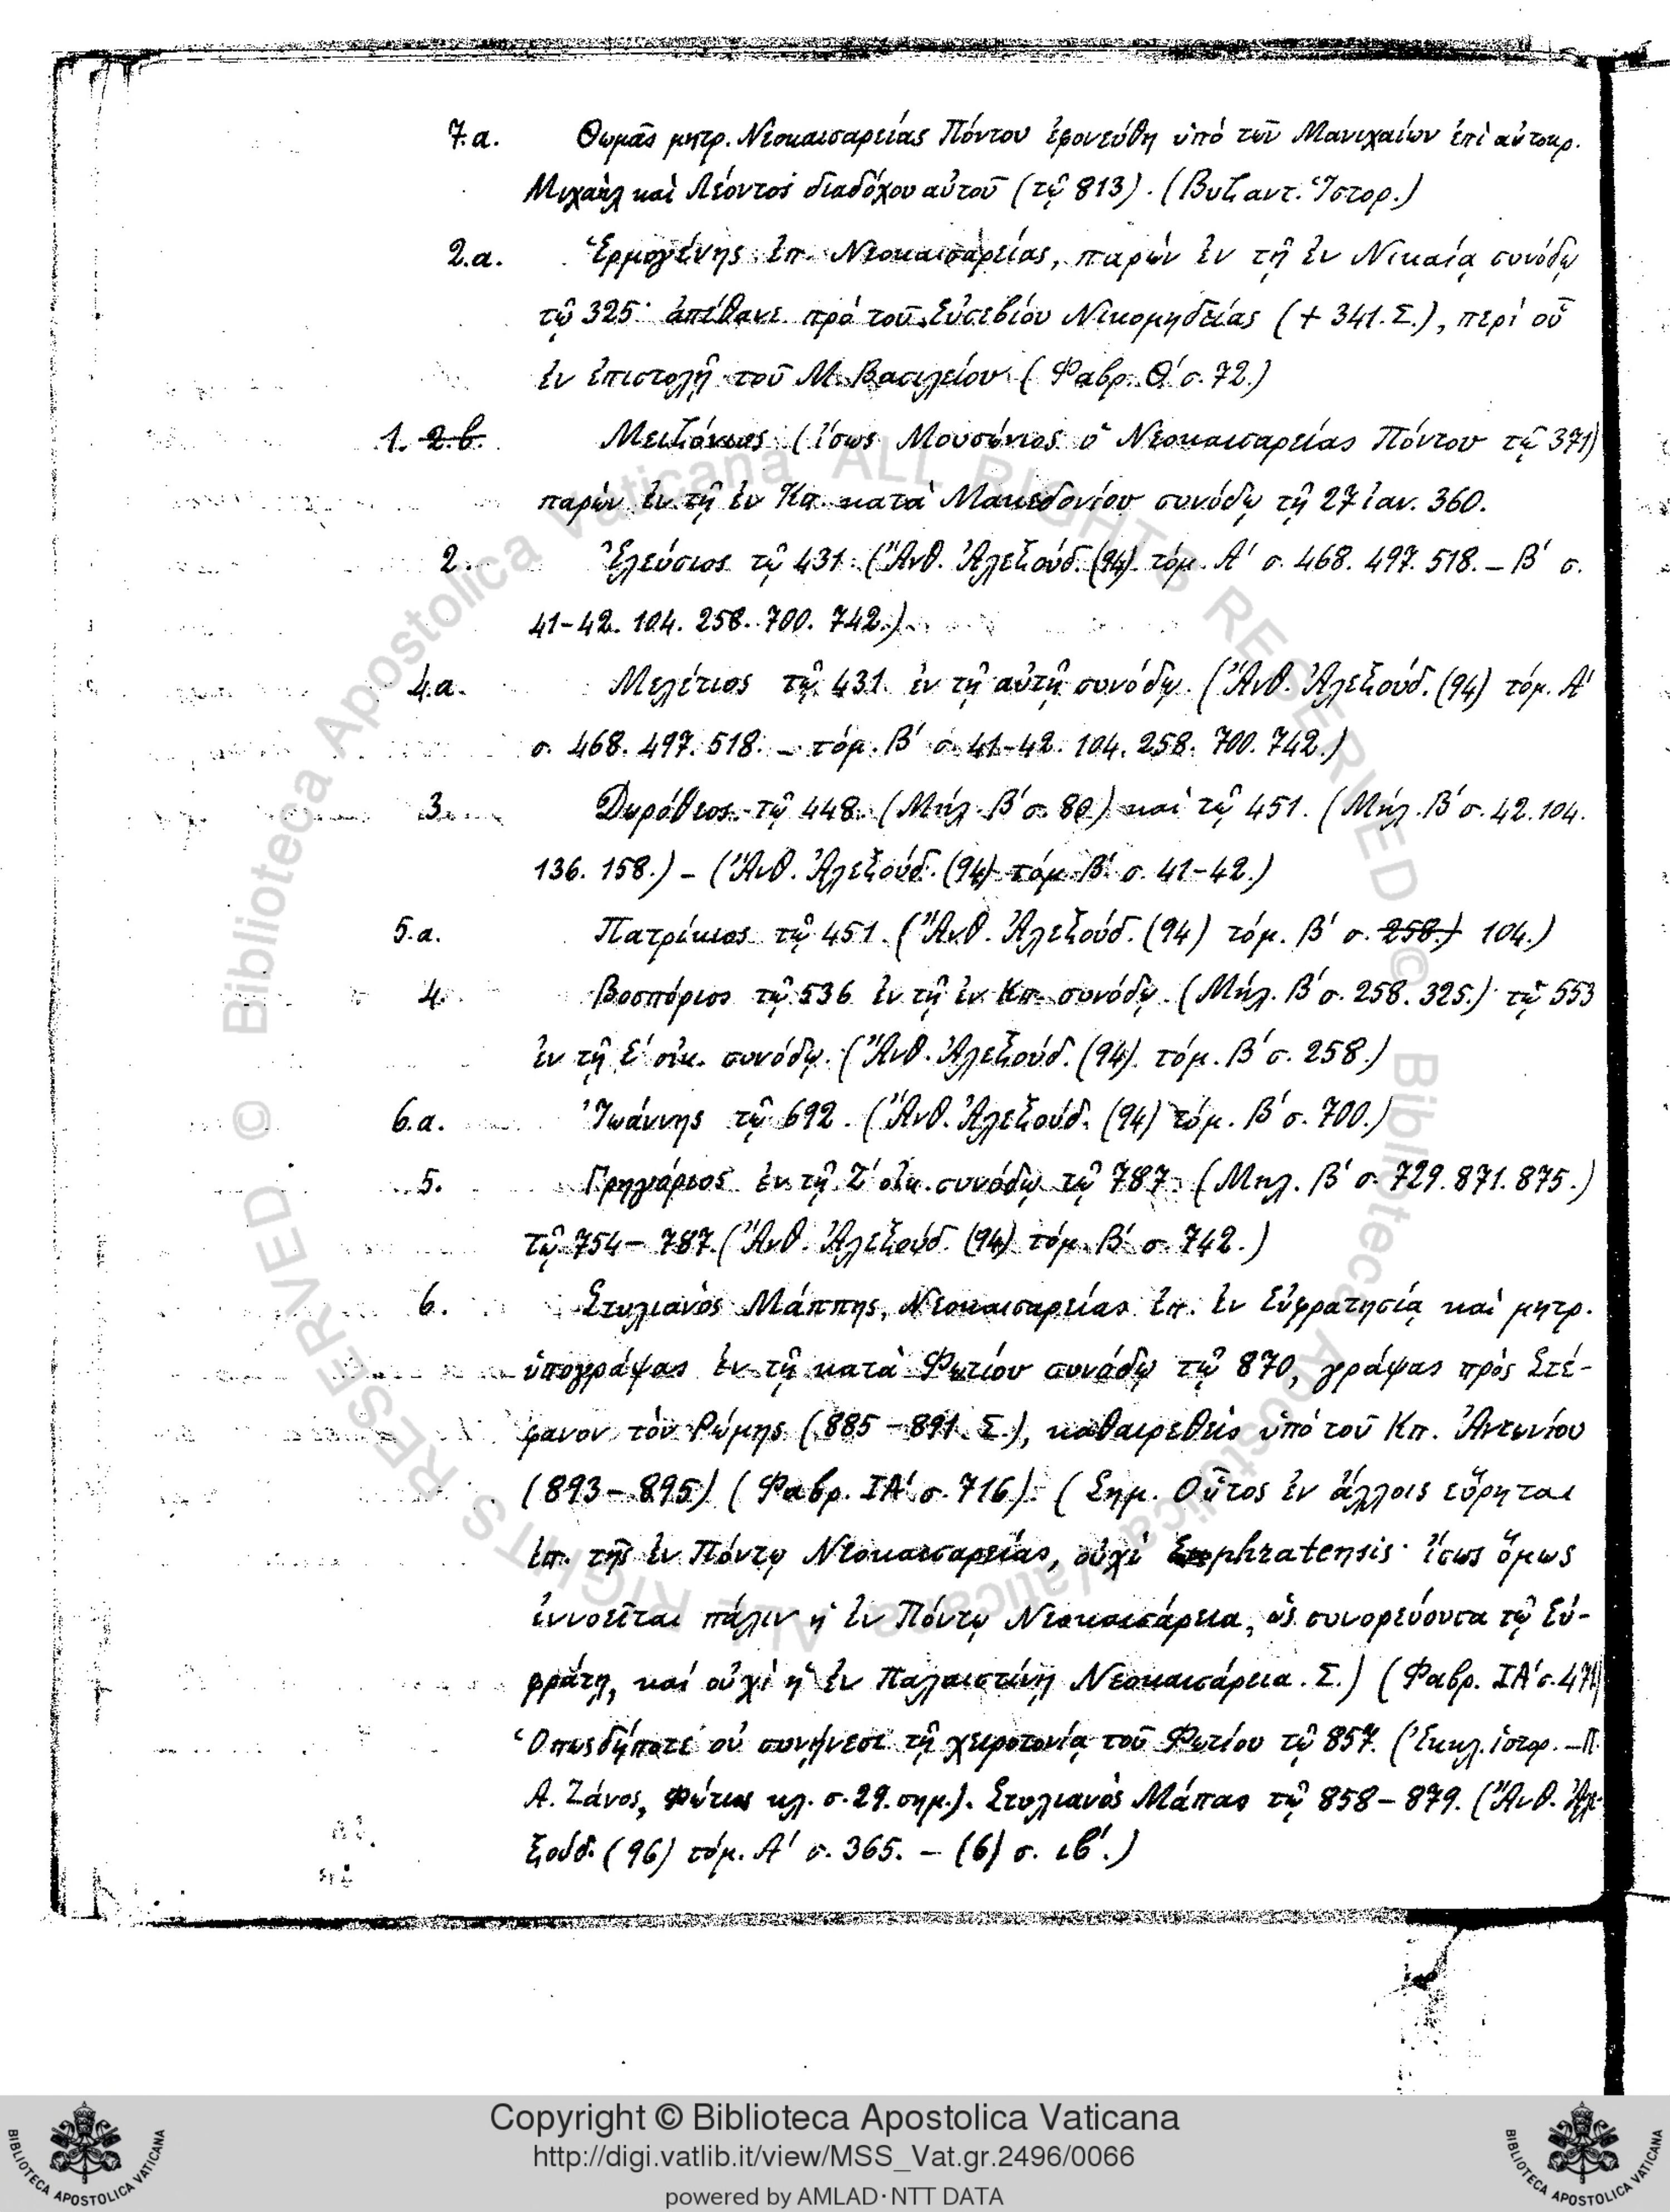 7.α. Θωμᾶς μητρ. Νεοκαισαρείας Πόντου ἐφονεύθη ὑπὸ τῶν Μανιχαίων ἐπὶ αὐτοκρ.
Μιχαὴλ καὶ Λέοντος διαδόχου αὐτοῦ (τῷ 813). (Βυζαντ. Ἱστορ.)
2.α. Ἑρμογένης ἐπ. Νεοκαισαρείας, παρὼν ἐν τῇ ἐν Νικαίᾳ συνόδῳ
τῷ 325· ἀπέθανε πρὸ τοῦ Εὐσεβίου Νικομηδείας (+ 341. Σ.), περὶ οὗ
ἐν ἐπιστολῇ τοῦ Μ. Βασιλείου (Φαβρ. Θ΄ σ. 72.)
1. 2.β. (ἴσως Μουσώνιος ὁ Νεοκαισαρείας Πόντου τῷ 371)
παρὼν ἐν τῇ ἐν Κπ. κατὰ Μακεδονίου συνόδῳ τῇ 27 ἰαν. 360.
2. Ἐλεύσιος τῷ 431. (Ἄνθ. Ἀλεξούδ. (94) τόμ. Α΄ σ. 468. 497. 518. – Β΄ σ.
41–42. 104. 258. 700. 742.)
4.α. Μελέτιος τῷ 431. ἐν τῇ αὐτῇ συνόδῳ. (Ἄνθ. Ἀλεξούδ. (94) τόμ. Α΄
σ. 468. 497. 518. – τόμ. Β΄ σ. 41–42. 104. 258. 700. 742.)
3. Δωρόθεος τῷ 448. (Μήλ. Β΄ σ. 80) καὶ τῷ 451. (Μήλ. Β΄ σ. 42. 104.
136. 158.) – (Ἄνθ. Ἀλεξούδ. (94) τόμ. Β΄ σ. 41–42.)
5.α. Πατρίκιος τῷ 451. (Ἄνθ. Ἀλεξούδ. (94) τόμ. Β΄ σ. 258.) 104.)
4. Βοσπόριος τῷ 536 ἐν τῇ ἐν Κπ. συνόδῳ. (Μήλ. Β΄ σ. 258. 325.) τῷ 553
ἐν τῇ Ε΄ οἰκ. συνόδῳ. (Ἄνθ. Ἀλεξούδ. (94). τόμ. Β΄ σ. 258.)
6.α. Ἰωάννης τῷ 692. (Ἄνθ. Ἀλεξούδ. (94) τόμ. Β΄ σ. 700.)
5. Γρηγόριος ἐν τῇ Ζ΄ οἰκ. συνόδῳ τῷ 787. (Μηλ. Β΄ σ. 729. 871. 875.)
τῷ 754 – 787. (Ἄνθ. Ἀλεξούδ. (94) τόμ. Β΄ σ. 742.)
6. Στυλιανὸς Μάππης, Νεοκαισαρείας ἐπ. ἐν Εὐφρατησίᾳ καὶ μητρ.
ὑπογράψας ἐν τῇ κατὰ Φωτίου συνόδῳ τῷ 870, γράψας πρὸς Στέ-
φανον τὸν Ῥώμης (885 – 891. Σ.), καθαιρεθεὶς ὑπὸ τοῦ Κπ. Ἀντωνίου
(893 – 895) (Φαβρ. ΙΑ΄ σ. 716). (Σημ. Οὗτος ἐν ἄλλοις εὕρηται
ἐπ. τῆς ἐν Πόντῳ Νεοκαισαρείας, οὐχὶ Euphratensis· ἴσως ὅμως
ἐννοεῖται πάλιν ἡ ἐν Πόντῳ Νεοκαισάρεια, ὡς συνορεύουσα τῷ Εὐ-
φράτῃ, καὶ οὐχὶ ἡ ἐν Παλαιστίνῃ Νεοκαισάρεια. Σ.) (Φαβρ. ΙΑ΄ σ.
Ὁπωςδήποτε οὐ συνῄνεσε τῇ χειροτονίᾳ τοῦ Φωτίου τῷ 857. (Ἐκκλ. ἱστορ. – Π.
Α. Ζάνος, Φώτιος κλ. σ. 29. σημ.). Στυλιανὸς Μάπας τῷ 858 – 879. (Ἄνθ. Ἀλε-
ξούδ. (96) τόμ. Α΄ σ. 365. – (6) σ. ιβ΄.)
© Biblioteca Apostolica Vaticana ALL RIGHTS RESERVED
© Biblioteca Apostolica Vaticana ALL RIGHTS RESERVED
Copyright © Biblioteca Apostolica Vaticana
http://digi.vatlib.it/view/MSS_Vat.gr.2496/0066
powered by AMLAD·NTT DATA
BIBLIOTECA APOSTOLICA VATICANA
BIBLIOTECA APOSTOLICA VATICANA